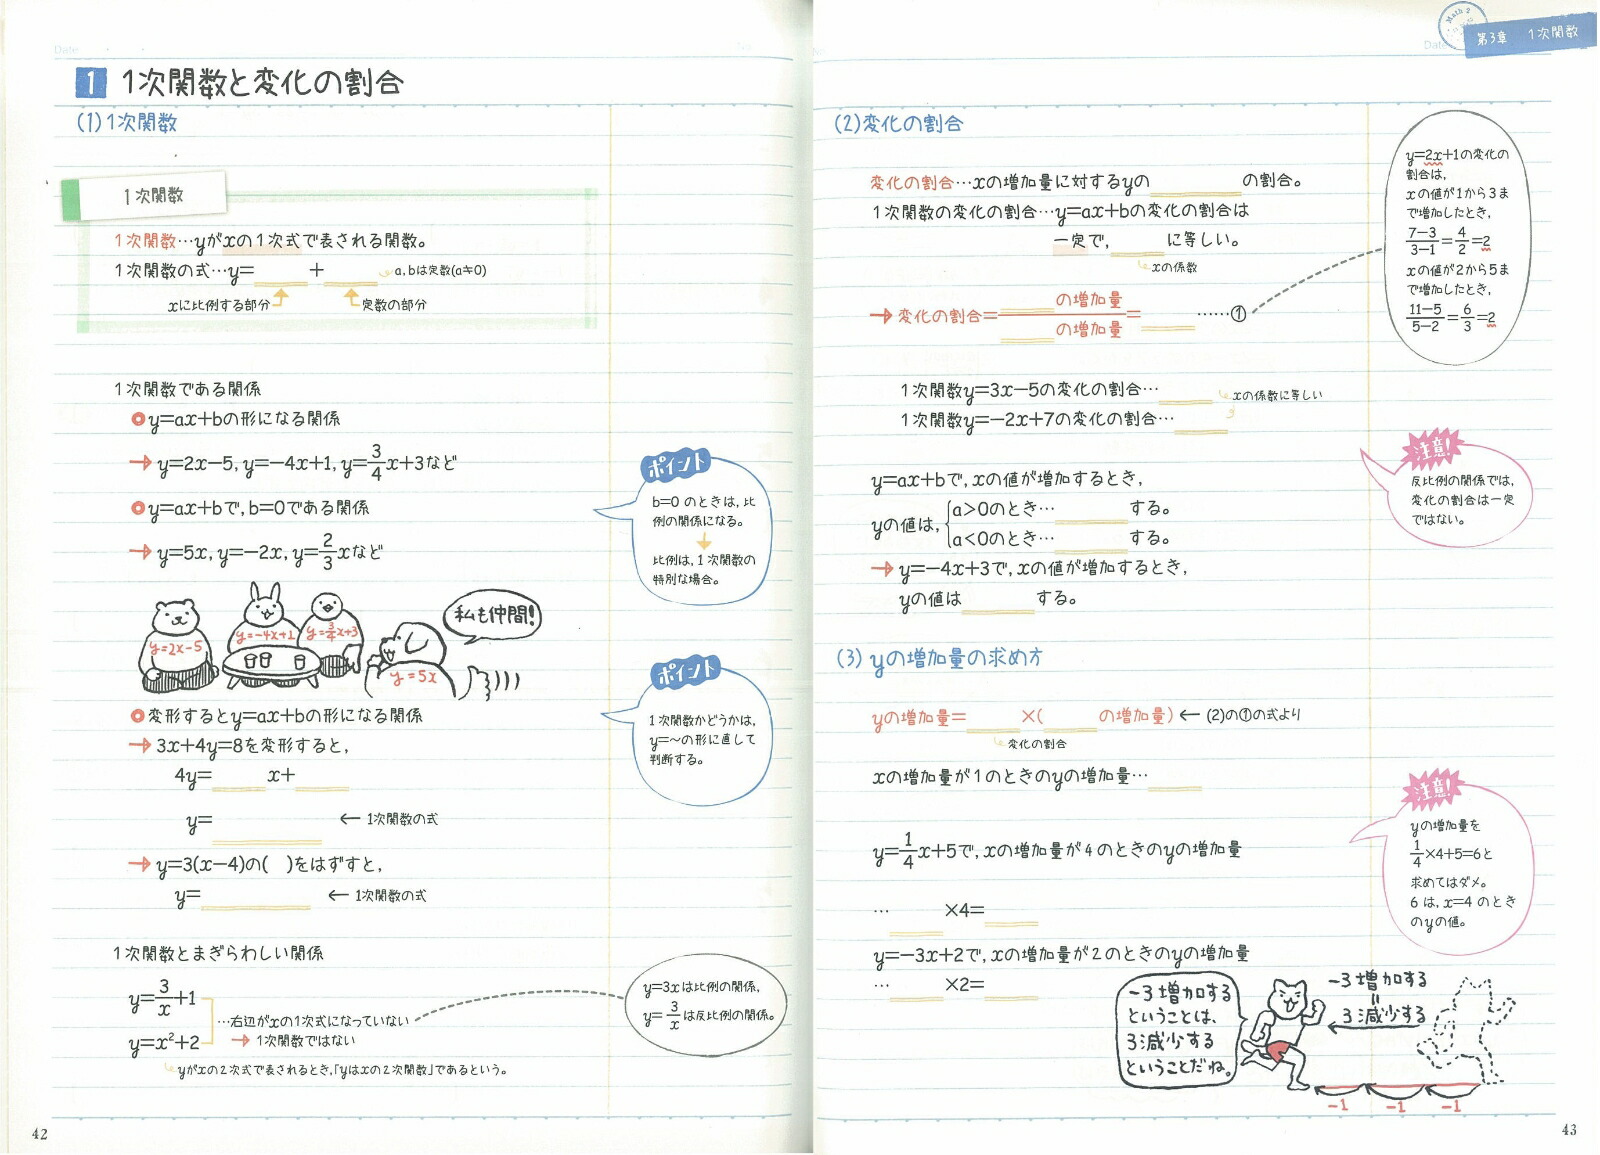 Date
No.
1 1次関数と変化の割合
(1)1次関数
1次関数
1次関数…yがxの1次式で表される関数。
1次関数の式…y= + a, bは定数(a≠0)
xに比例する部分 定数の部分
1次関数である関係
y=ax+bの形になる関係
→ y=2x−5, y=−4x+1, y=3/4x+3など
y=ax+bで, b=0である関係
→ y=5x, y=−2x, y=2/3xなど
ポイント
b=0 のときは, 比
例の関係になる。
比例は, 1次関数の
特別な場合。
y=2x−5
y=−4x+1
y=3/4x+3
y=5x
私も仲間!
変形するとy=ax+bの形になる関係
→ 3x+4y=8を変形すると,
4y= x+
y= ← 1次関数の式
→ y=3(x−4)の( )をはずすと,
y= ← 1次関数の式
ポイント
1次関数かどうかは,
y=〜の形に直して
判断する。
1次関数とまぎらわしい関係
y=3/x+1
y=x²+2
…右辺がxの1次式になっていない
→ 1次関数ではない
yがxの2次式で表されるとき,「yはxの2次関数」であるという。
y=3xは比例の関係,
y=3/xは反比例の関係。
42
Math 2
Date
第3章 1次関数
(2)変化の割合
変化の割合…xの増加量に対するyの の割合。
1次関数の変化の割合…y=ax+bの変化の割合は
一定で, に等しい。
xの係数
→ 変化の割合= の増加量/ の増加量= ……①
y=2x+1の変化の
割合は,
xの値が1から3ま
で増加したとき,
7−3/3−1=4/2=2
xの値が2から5ま
で増加したとき,
11−5/5−2=6/3=2
1次関数y=3x−5の変化の割合… xの係数に等しい
1次関数y=−2x+7の変化の割合…
注意!
反比例の関係では,
変化の割合は一定
ではない。
y=ax+bで, xの値が増加するとき,
yの値は,
a>0のとき… する。
a<0のとき… する。
→ y=−4x+3で, xの値が増加するとき,
yの値は する。
(3) yの増加量の求め方
yの増加量= ×( の増加量) ← (2)の①の式より
変化の割合
xの増加量が1のときのyの増加量…
y=1/4x+5で, xの増加量が4のときのyの増加量
… ×4=
y=−3x+2で, xの増加量が2のときのyの増加量
… ×2=
注意!
yの増加量を
1/4×4+5=6と
求めてはダメ。
6は, x=4のとき
のyの値。
−3増加する
ということは,
3減少する
ということだね。
−3増加する
=
3減少する
−1 −1 −1
43